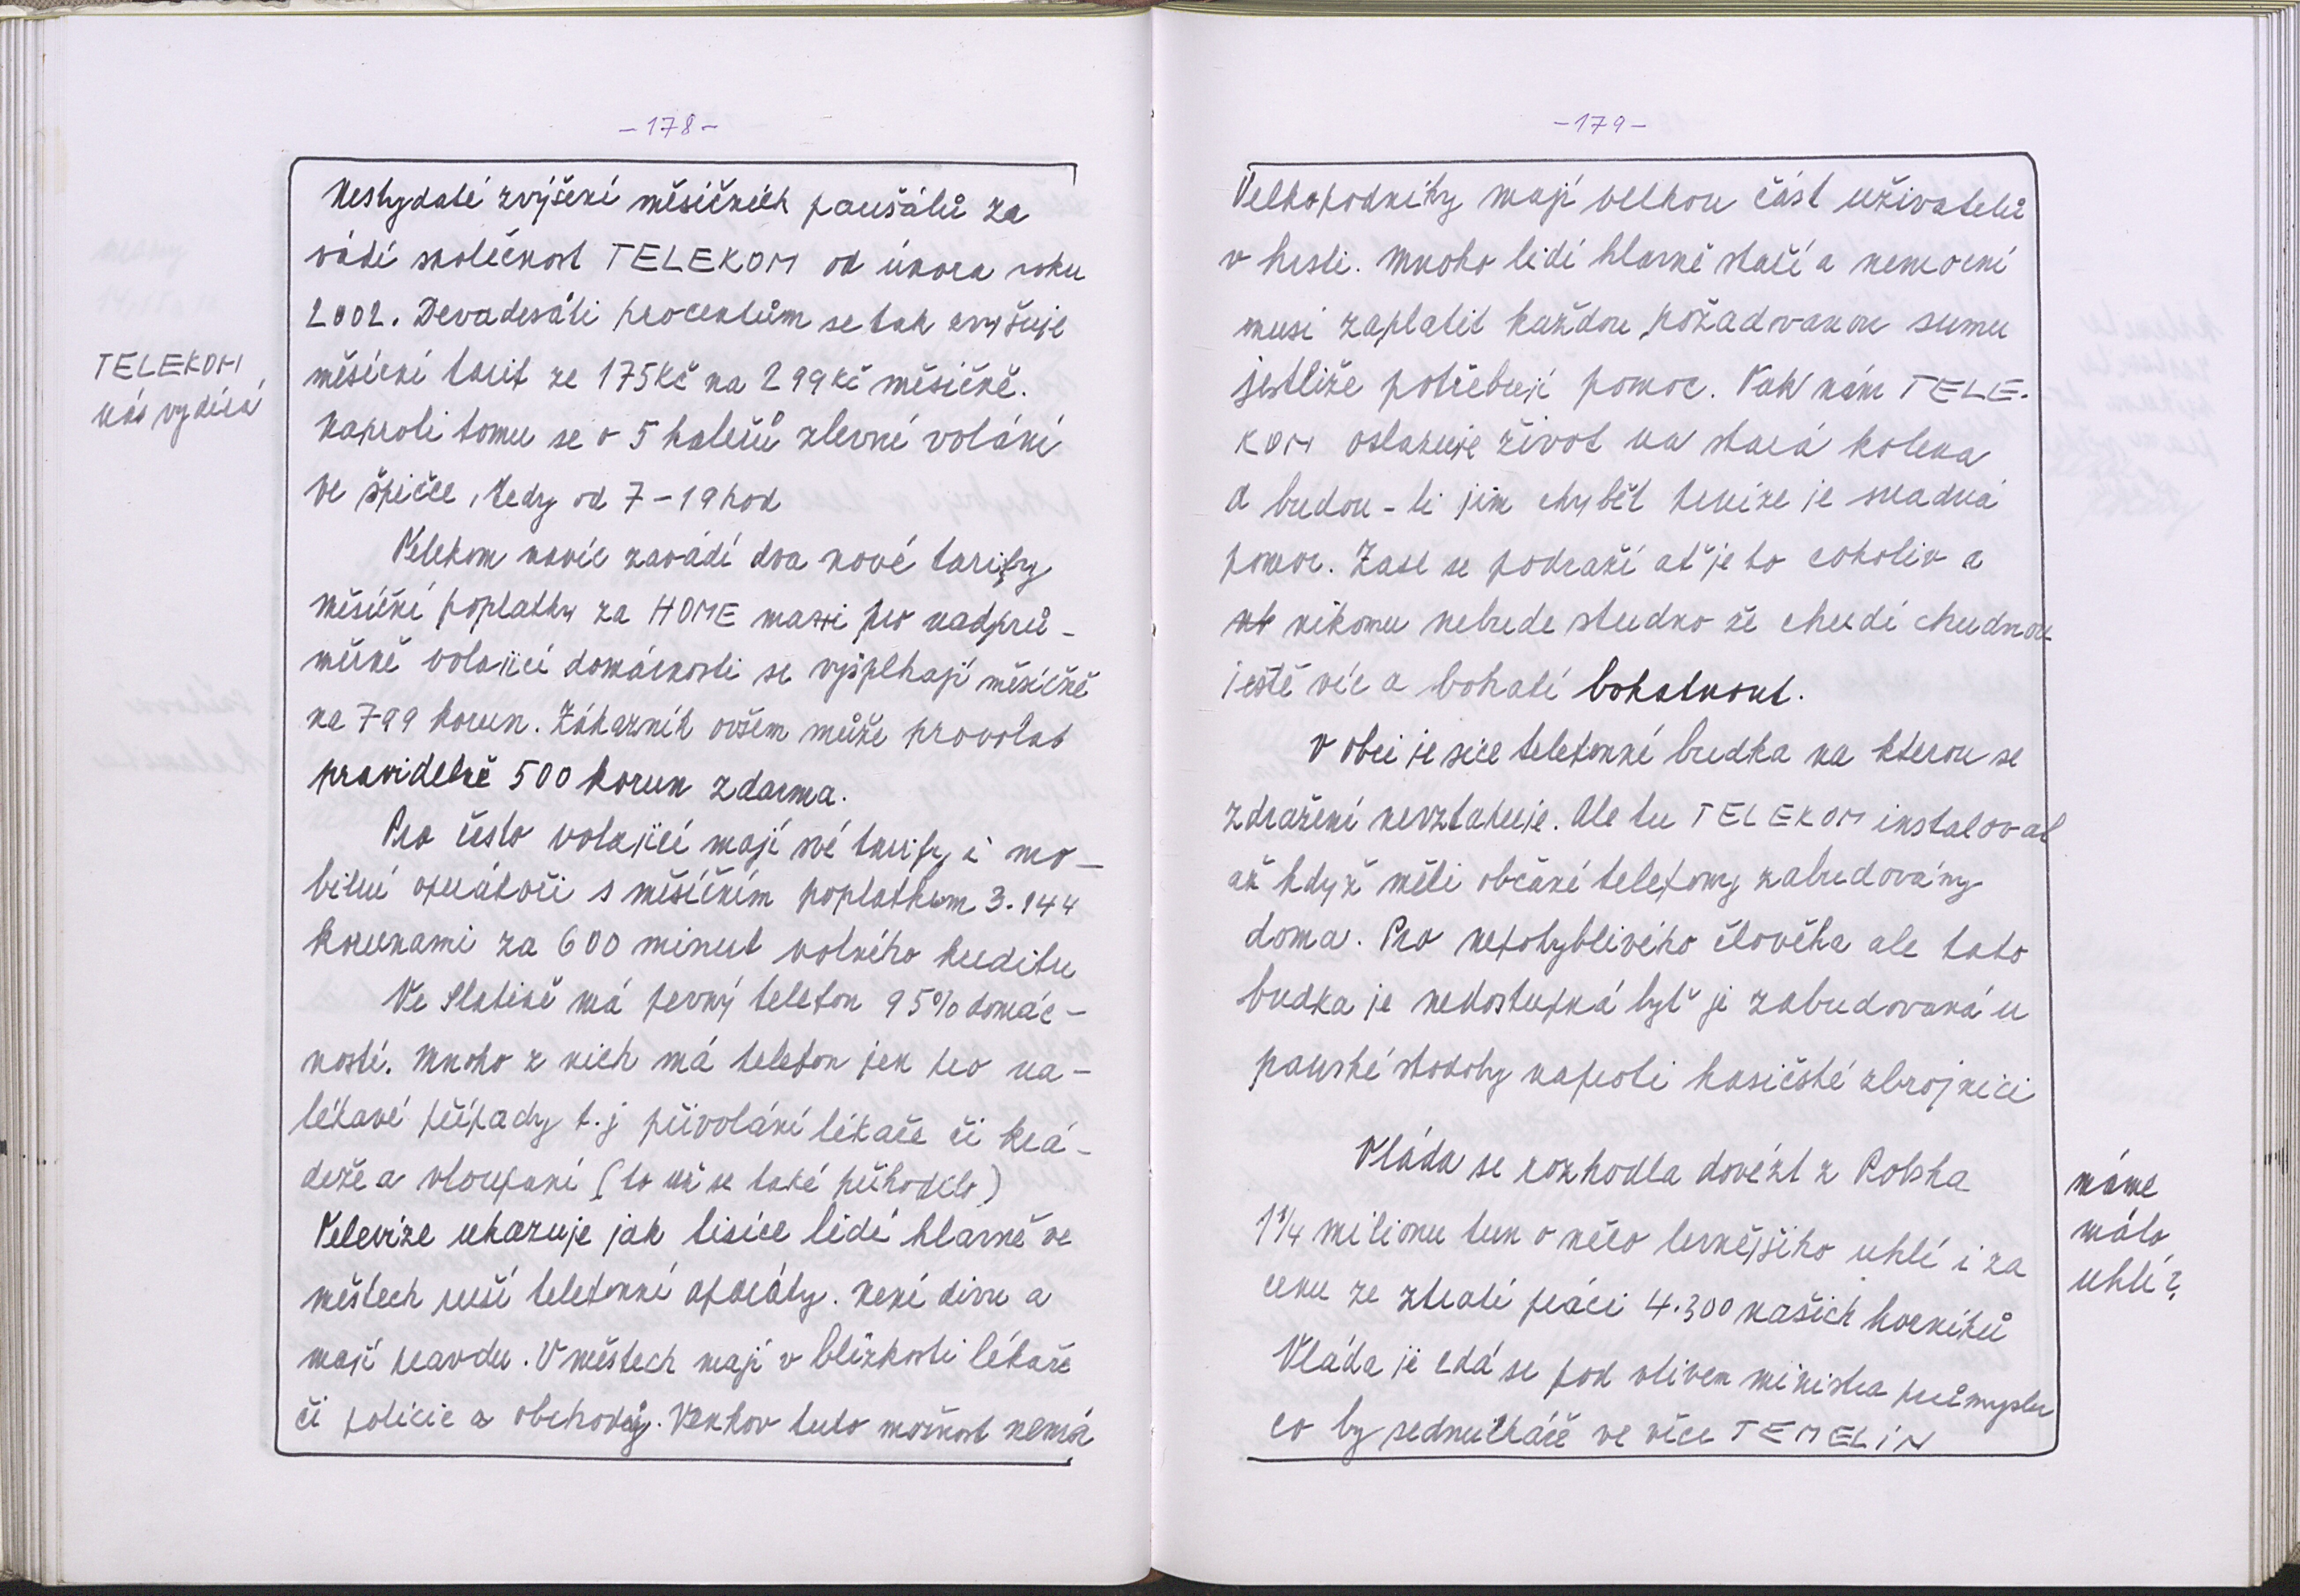 -178-
TELEKOM
nás vydírá
Nestydaté zvýšení měsíčních paušálů za
vádí společnost TELEKOM od února roku
2002. Devadesáti procentům se tak zvyšuje
měsíční tarif ze 175Kč na 299Kč měsíčně.
Naproti tomu se o 5 haléřů zlevní volání
ve špičce, tedy od 7-19hod
Telekom navíc zavádí dva nové tarify
měsíční poplatky za HOME maxi pro nadprů-
měrně volající domácnosti se vyšplhají měsíčně
na 799 korun. Zákazník ovšem může provolat
pravidelně 500 korun zdarma.
Pro často volající mají své tarify i mo-
bilní operátoři s měsíčním poplatkem 3.144
korunami za 600 minut volného kreditu
Ve Slatině má pevný telefon 95% domác-
ností. Mnoho z nich má telefon jen pro na-
léhavé případy t.j přivolání lékaře či krá-
deže a vloupání (to už se také přihodilo)
Televize ukazuje jak tisíce lidí hlavně ve
městech ruší telefonní aparáty. Není divu a
mají pravdu. V městech mají v blízkosti lékaře
či policie a obchody. Venkov tuto možnost nemá
-179-
Velkopodniky mají velkou část uživatelů
v hrsti. Mnoho lidí hlavně staří a nemocní
musi zaplatit každou požadovanou sumu
jestliže potřebují pomoc. Tak nám TELE-
KOM oslazuje život na stará kolena
A budou-li jim chybět peníze je snadná
pomoc. Zase se podraží ať je to cokoliv a
nikomu nebude studno že chudí chudnou
ještě víc a bohatí bohatnout.
V obci je sice telefonní budka na kterou se
zdražení nevztahuje. Ale tu TELEKOM instaloval
až když měli občané telefony zabudovány
doma. Pro nepohyblivého člověka ale tato
budka je nedostupná byť je zabudovaná u
panské stodoly naproti hasičské zbrojnici
Vláda se rozhodla dovézt z Polska
1 1/4 milionu tun o něco levnějšího uhlí i za
cenu ze ztratí práci 4.300 našich horníků
Vláda je zdá se pod vlivem ministra průmyslu
co by přednuíkáře ve věce TEMELÍN
máme
málo
uhlí?